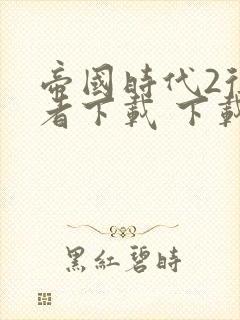 帝國時代2征
者下載 下載
黑紅碧時